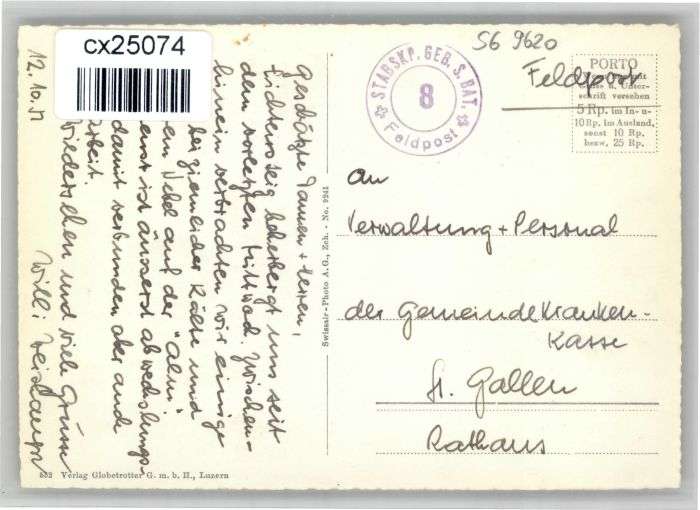 cx25074
12. 10. 51
Geschätzte Damen + Herren,
Lichtensteig beherbergt uns seit
dem vorletzten Mittwoch. Zwischen-
hinein verbrachten wir einige
bei ziemlicher Kälte und
Nebel auf der "Alm".
ist äusserst abwechslungs-
damit verbunden aber auch
Arbeit.
Wiedersehen und viele Grüsse
Willi
Swissair-Photo A.G., Zch. - No. 9241
532 Verlag Globetrotter G. m. b. H., Luzern
STABSKP. GEB. S. BAT.
8
Feldpost
S6 9620
Feldpost
PORTO
schrift versehen
5 Rp. im In- u.
10 Rp. im Ausland,
sonst 10 Rp.
bezw. 25 Rp.
An
Verwaltung + Personal
der Gemeindekranken-
kasse
St. Gallen
Rathaus